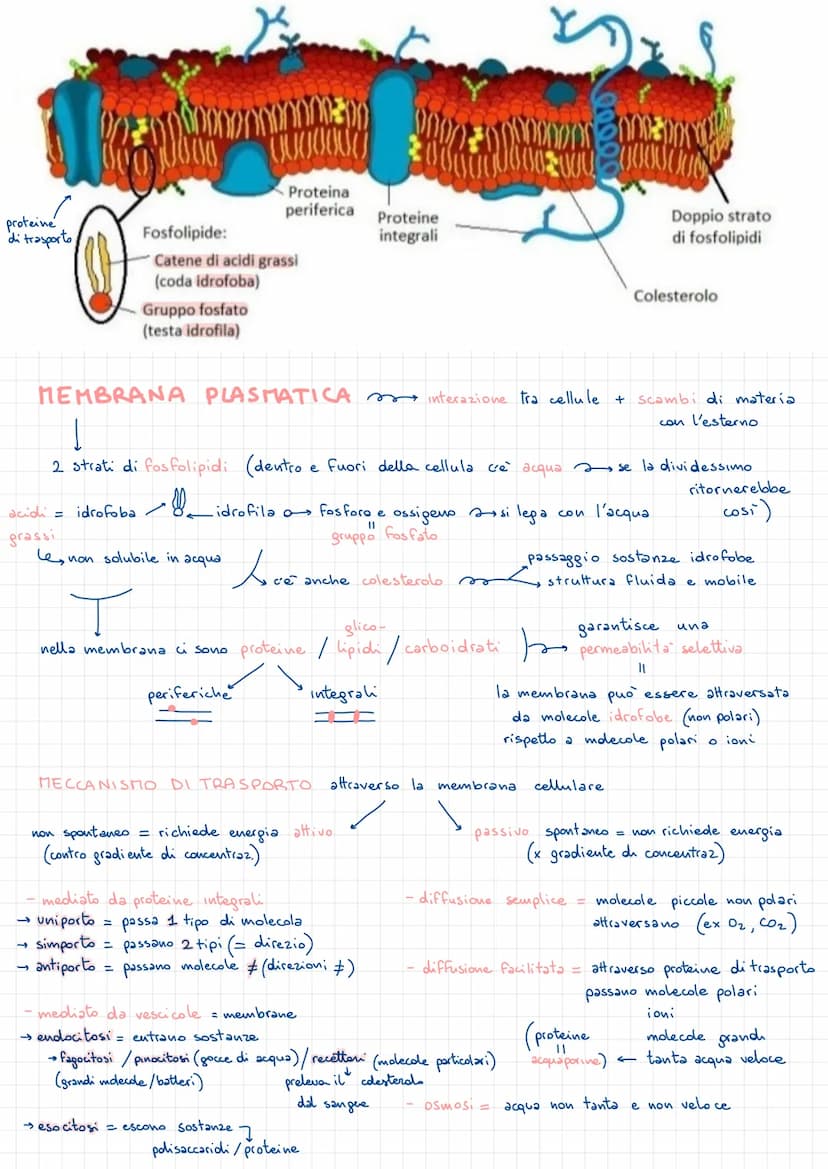 Proteina
periferica
Proteine
integrali
Doppio strato
di fosfolipidi
Colesterolo
proteine
di trasporto
Fosfolipide:
Catene di acidi grassi
(coda idrofoba)
Gruppo fosfato
(testa idrofila)
MEMBRANA PLASMATICA interazione tra cellule + scambi di materia
con l'esterno
2 strati di fosfolipidi (dentro e fuori della cellula c'è acqua → se la dividessimo
ritornerebbe
così)
acidi = idrofoba idrofila → fosforo e ossigeno → si lega con l'acqua
grassi
=
gruppo fosfato
↳ non solubile in acqua
c'è anche colesterolo
passaggio sostanze idrofobe
struttura fluida e mobile
glico-
nella membrana ci sono proteine / lipidi / carboidrati
garantisce una
permeabilità selettiva
=
periferiche integrali
la membrana può essere attraversata
da molecole idrofobe (non polari)
rispetto a molecole polari o ioni
MECCANISMO DI TRASPORTO attraverso la membrana cellulare
non spontaneo = richiede energia attivo
(contro gradiente di concentraz)
passivo spontaneo = non richiede energia
(x gradiente di concentraz)
- mediato da proteine integrali
→ uniporto = passa 1 tipo di molecola
→ simporto = passano 2 tipi (= direzio)
→ antiporto = passano molecole ≠ (direzioni ≠)
- mediato da vescicole = membrane
→ endocitosi = entrano sostanze
→ fagocitosi / pinocitosi (gocce di acqua) / recettori (molecole particolari)
(grandi molecole / batteri) preleva il colesterolo
dal sangue
→ esocitosi = escono sostanze
polisaccaridi / proteine
- diffusione semplice = molecole piccole non polari
attraversano (ex O2, CO2)
- diffusione facilitata = attraverso proteine di trasporto
passano molecole polari
ioni
molecole grandi
(proteine
=
acquaporine) ← tanta acqua veloce
- osmosi = acqua non tanta e non veloce